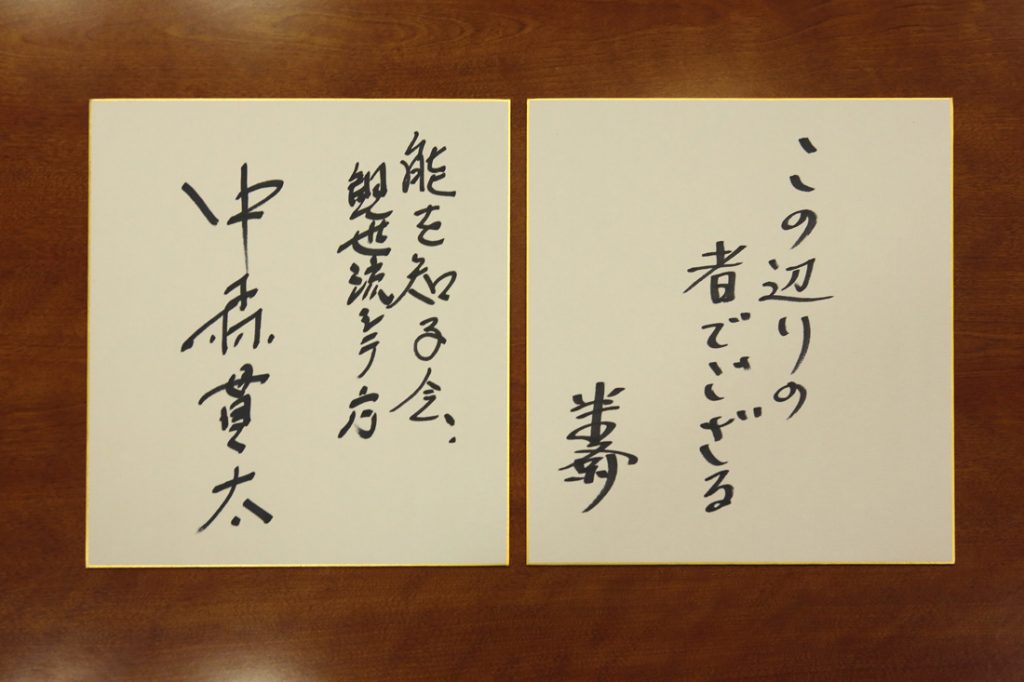 この辺りの
者でござる
能を知る会、
観世流シテ方
中森貫太